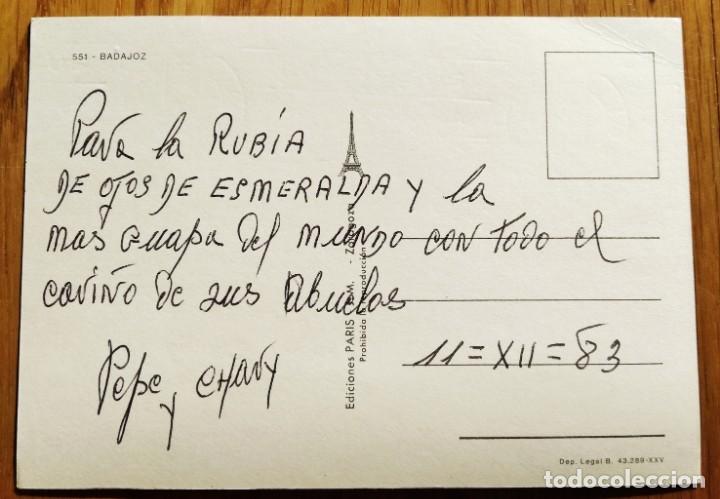 551 - BADAJOZ
Para la RUBÍA
DE OJOS DE ESMERALDA y la
mas Guapa del mundo con todo el
cariño de sus Abuelos
Pepe y CHARY
11=XII=83
Ediciones PARIS - Zaragoza
Prohibida la reproducción
Dep. Legal B. 43.289-XXV
todocoleccion